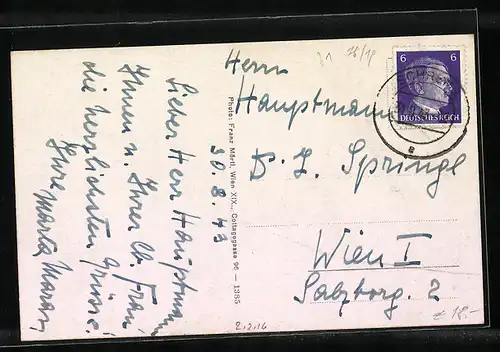 Lieber Herr Hauptmann
Ihnen u. Ihrer lb. Frau
die herzlichsten Grüsse!
Ihre Marta
30.8.43
Photo: Franz Mörtl, Wien XIX., Cottagegasse 96 — 1385
Herrn
Hauptmann
Springe
Wien I
Salztorg. 2
6 6
DEUTSCHES REICH
2.2.16
€ 18.-